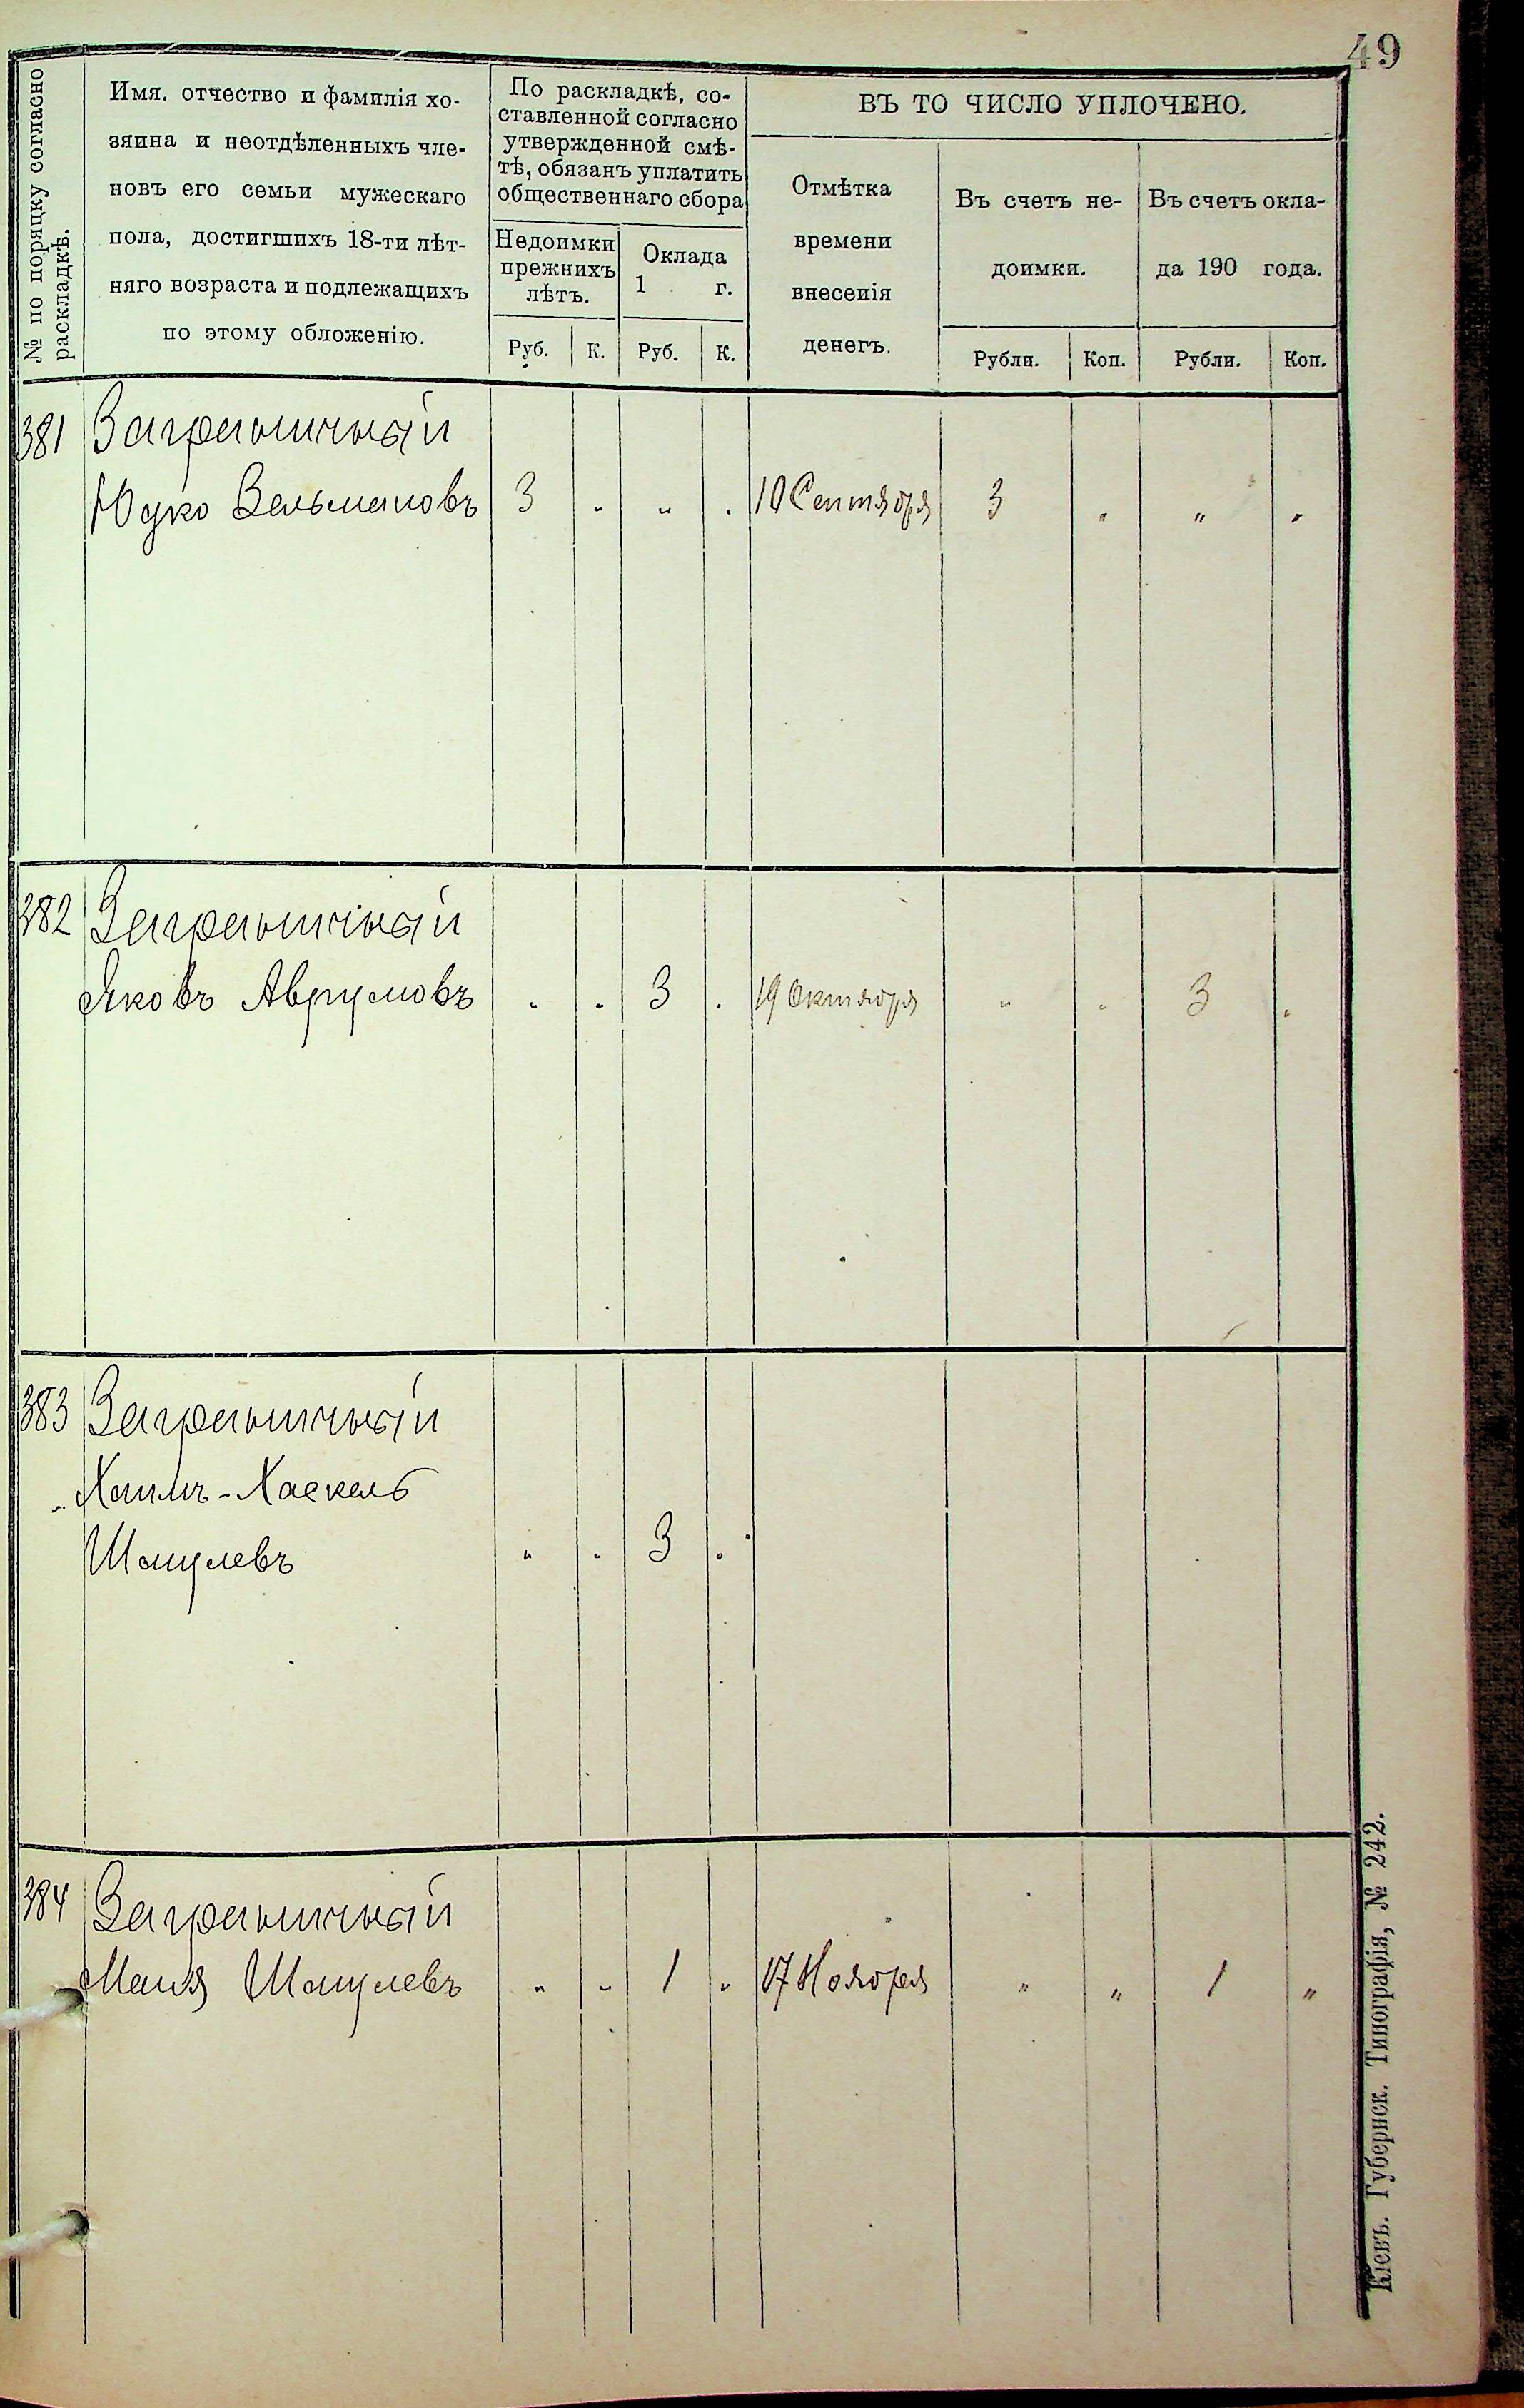 49
№ по порядку согласно
раскладкѣ.
Имя. отчество и фамилія хо-
зяина и неотдѣленныхъ чле-
новъ его семьи мужескаго
пола, достигшихъ 18-ти лѣт-
няго возраста и подлежащихъ
по этому обложенію.
По раскладкѣ, со-
ставленной согласно
утвержденной смѣ-
тѣ, обязанъ уплатить
общественнаго сбора
Недоимки
прежнихъ
лѣтъ.
Оклада
1 г.
Руб. К. Руб. К.
ВЪ ТО ЧИСЛО УПЛОЧЕНО.
Отмѣтка
времени
внесенія
денегъ.
Въ счетъ не-
доимки.
Въ счетъ окла-
да 190 года.
Рубли. Коп. Рубли. Коп.
381 Заграничный
Юдко Зельмановъ 3 „ „ „ 10 Сентября 3 „ „ „
382 Заграничный
Яковъ Аврумовъ „ „ 3 „ 19 Октября „ „ 3 „
383 Заграничный
Хаимъ-Хаскель
Шмулевъ „ „ 3 „
384 Заграничный
Маня Шмулевъ „ „ 1 „ 17 Ноября „ „ 1 „
Кіевъ. Губернск. Типографія, № 242.